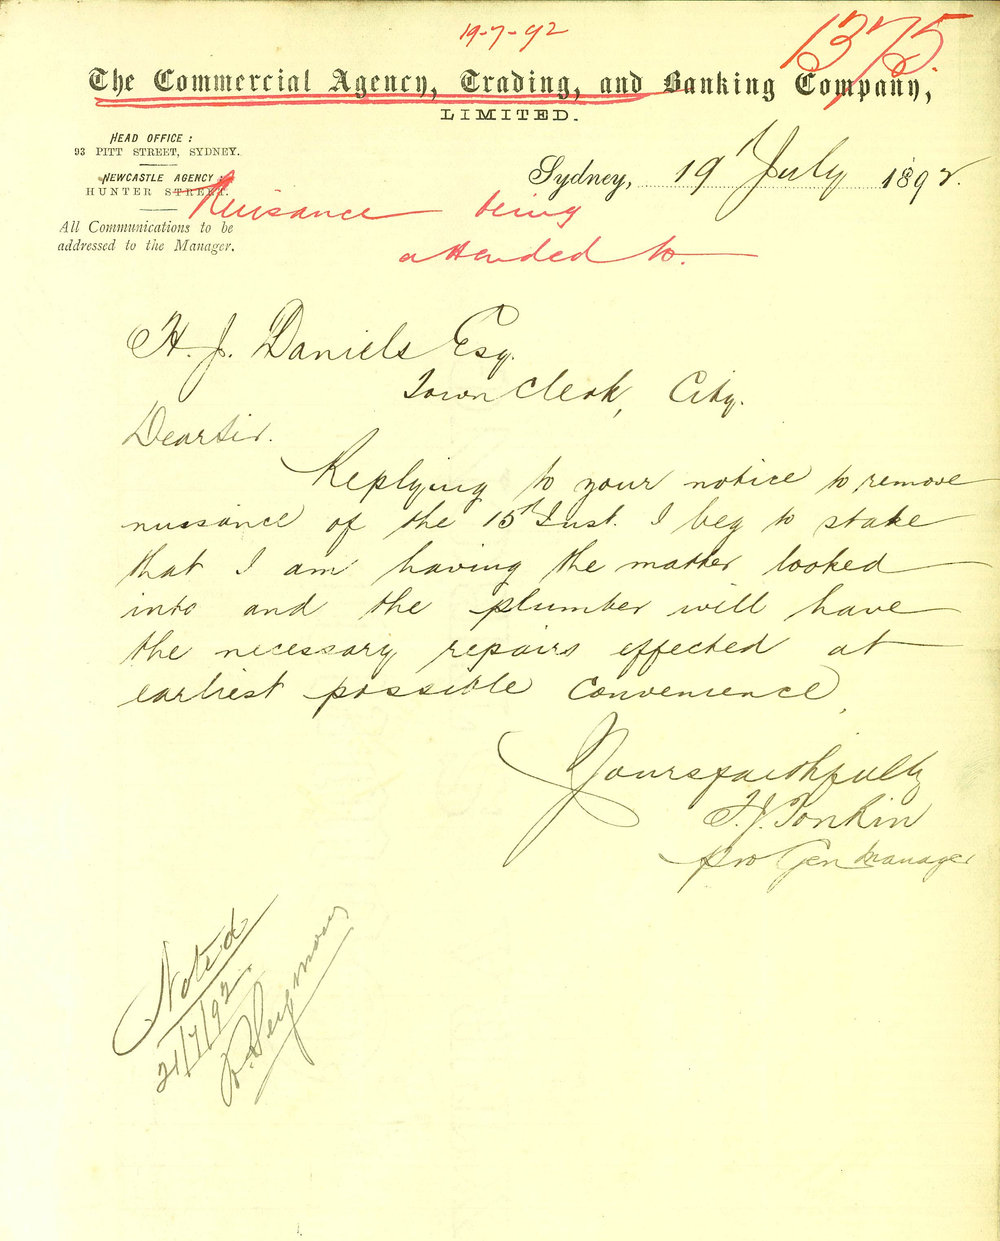 19-7-92
1375
The Commercial Agency, Trading, and Banking Company,
LIMITED.
HEAD OFFICE:
93 PITT STREET, SYDNEY.
NEWCASTLE AGENCY:
HUNTER STREET.
All Communications to be
addressed to the Manager.
Sydney, 19th July 1892.
Nuisance being
attended to.
H. J. Daniels Esq.
Town Clerk, City.
Dear Sir.
Replying to your notice to remove
nussance of the 15th Inst. I beg to state
that I am having the matter looked
into and the plumber will have
the necessary repairs effected at
earliest possible convenience.
Yours faithfully
F. J. Tonkin
pro Gen Manager
Noted
21/7/92
R. Seymour